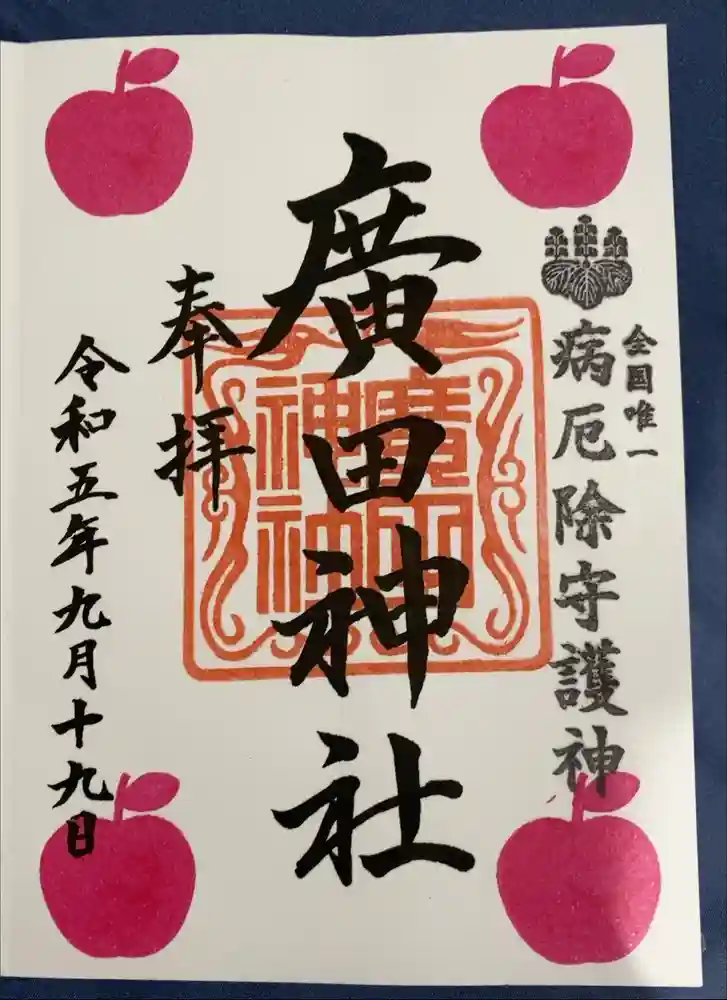 全国唯一
病厄除守護神
廣田神社
奉拝
令和五年九月十九日